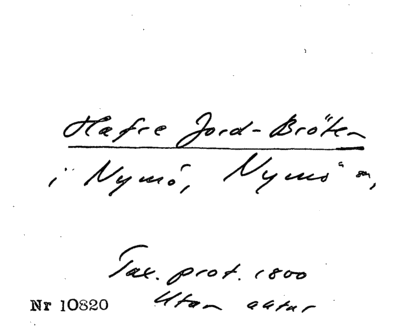 Hafre Jord-Bröten
i Nymö, Nymö sn,
Tax. prot. 1800
Utan aatur
Nr 10820